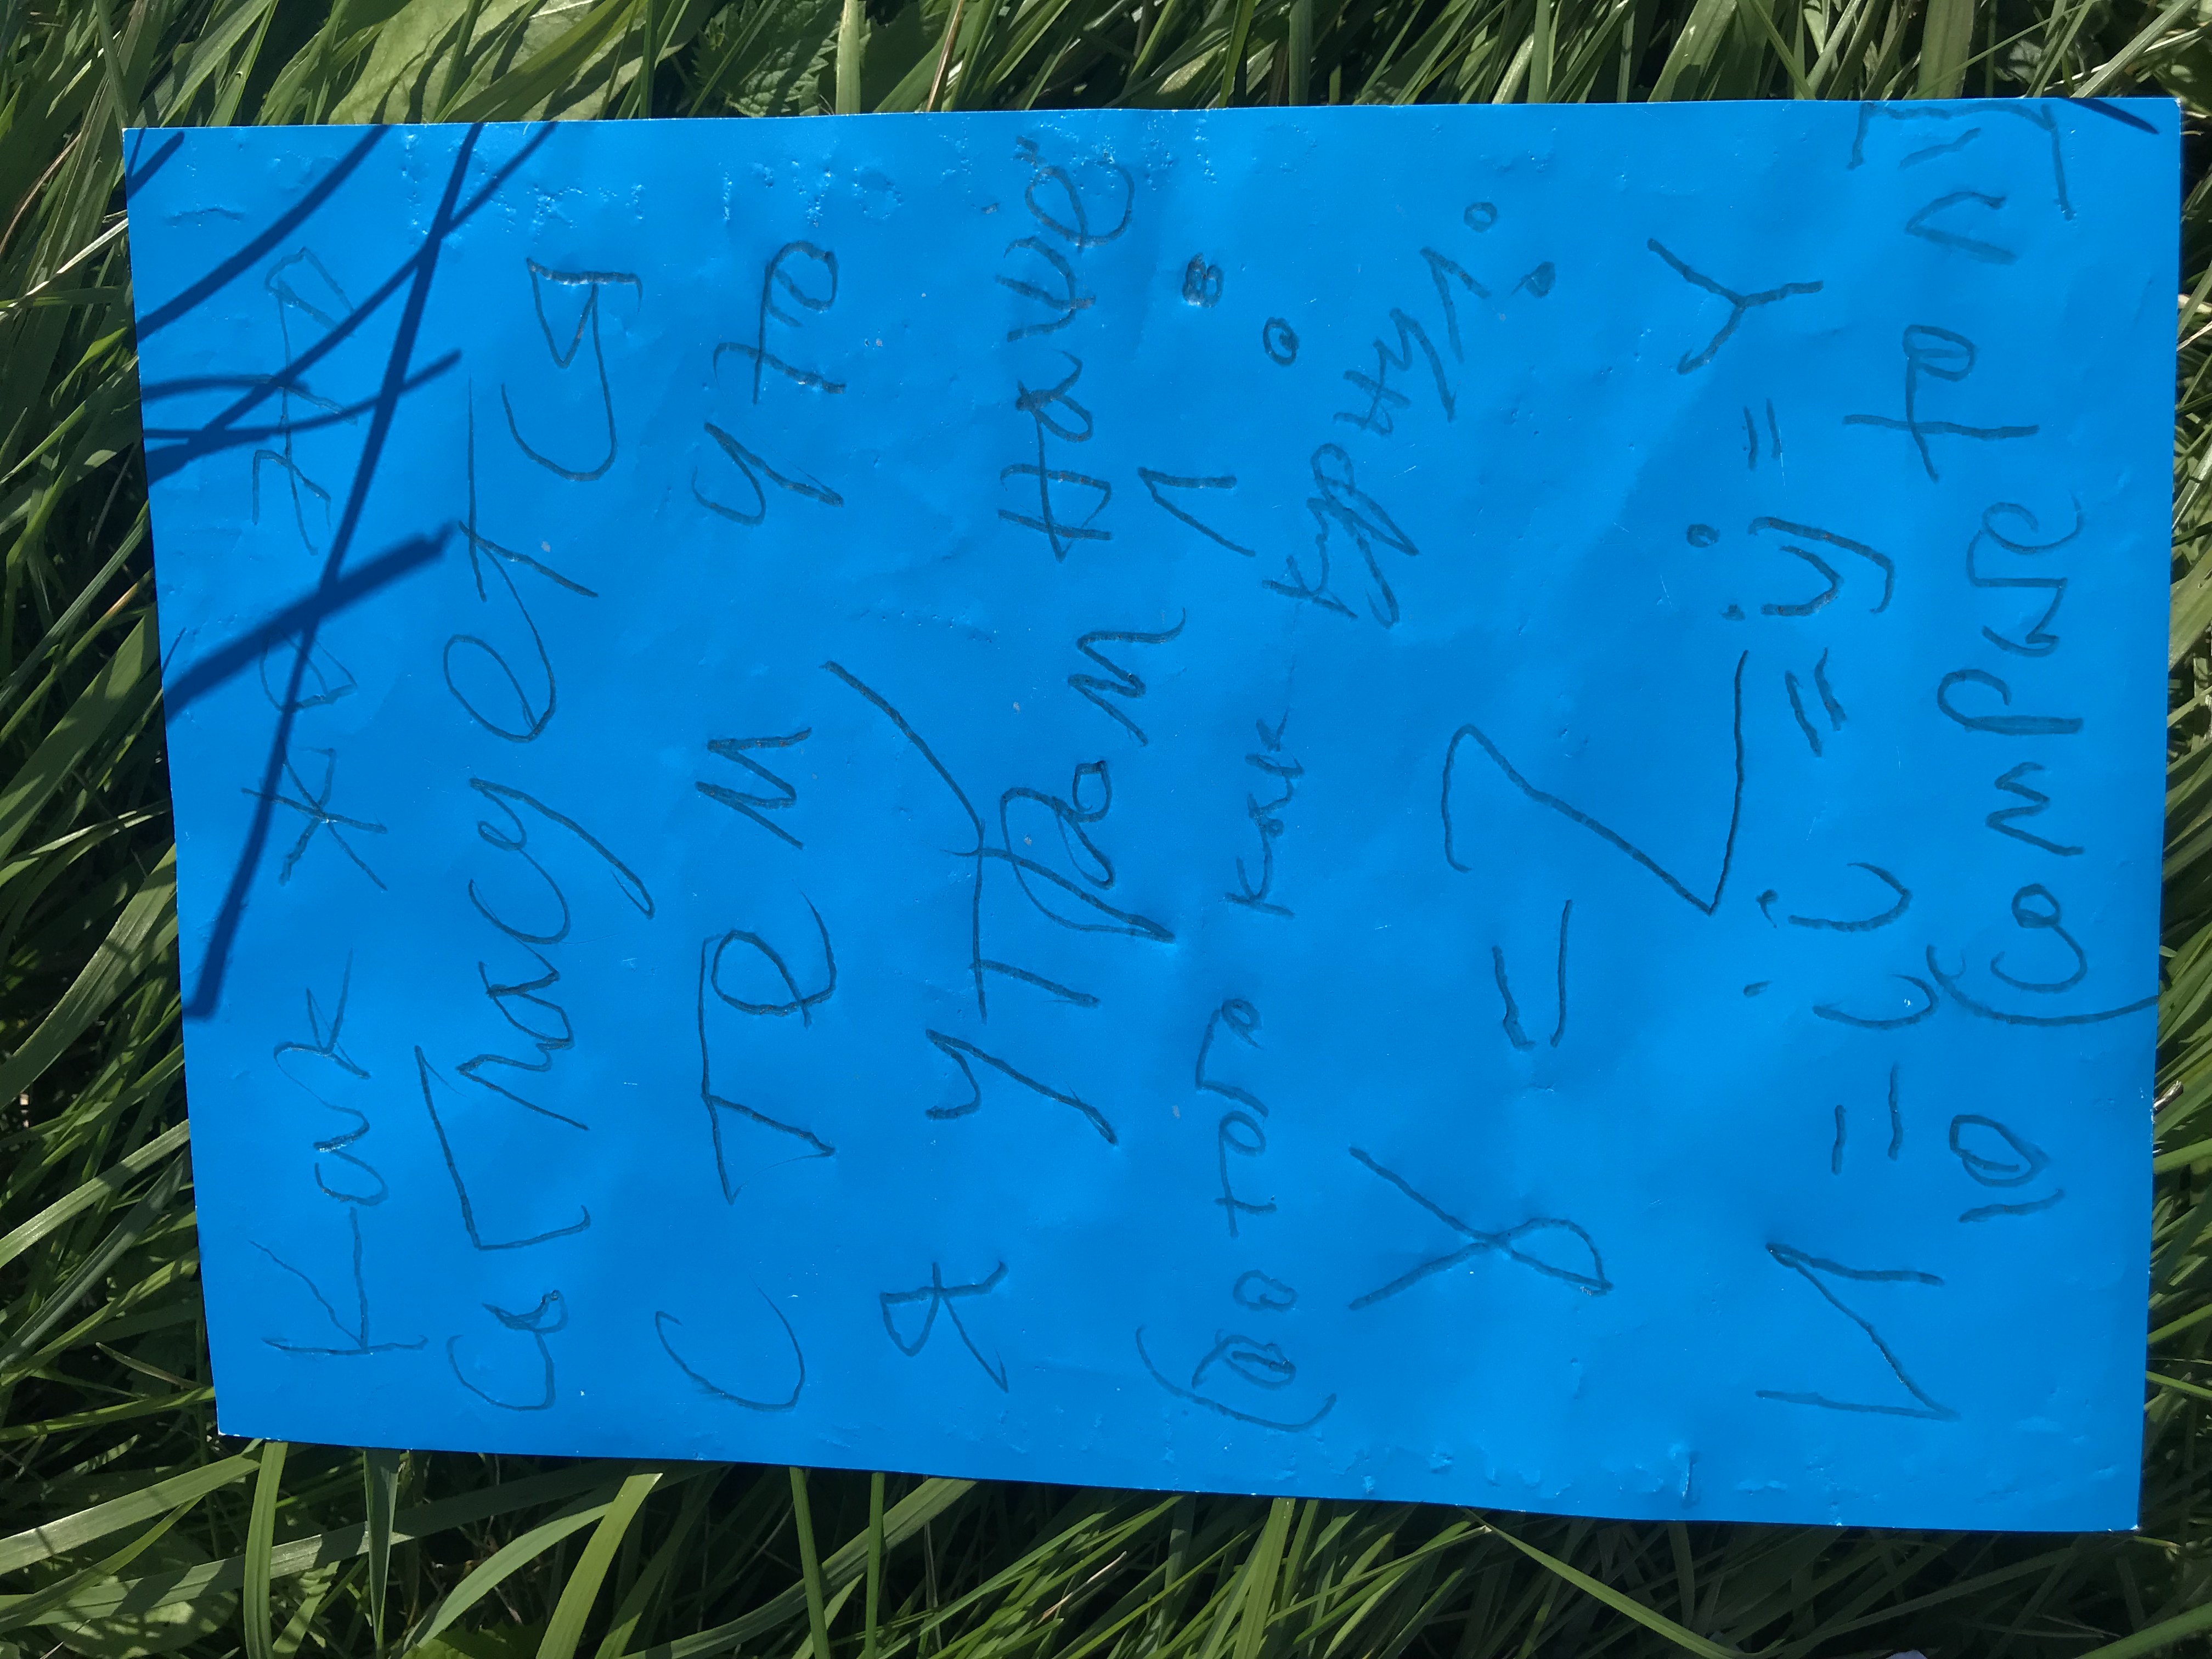 Как же это
согласуется
с тем что
я утром нашё
л :
(до того как курнул:
γ = Z
И = ii = ij = Y
10 (compare to